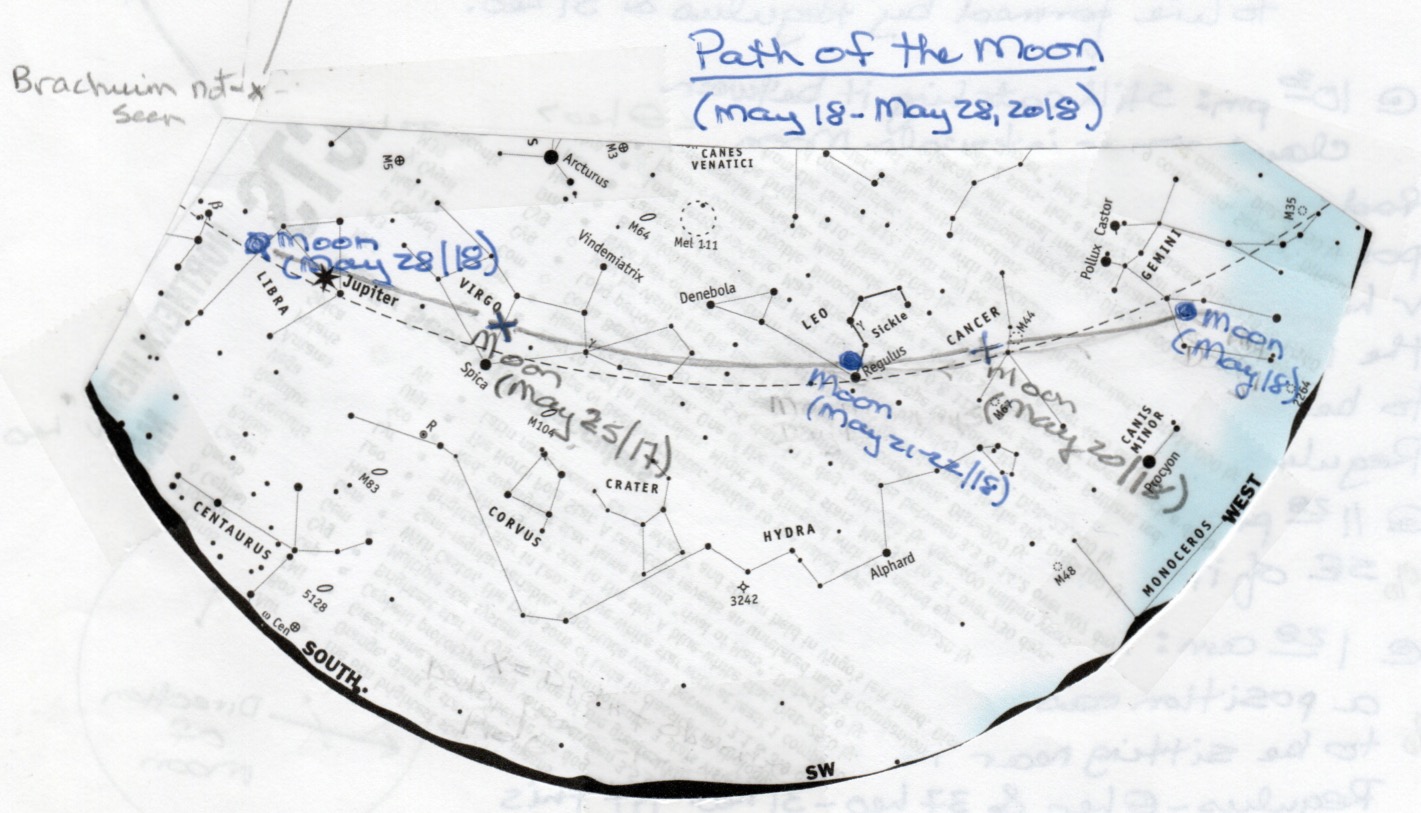 Path of the Moon
(May 18 - May 28, 2018)
Brachuim not -x-
seen
M5
S
Arcturus
M3
CANES
VENATICI
M64
Mel 111
Vindemiatrix
Castor
Pollux
GEMINI
M35
β
Moon
(May 28/18)
LIBRA
Jupiter
VIRGO
Denebola
LEO
γ
Sickle
Regulus
CANCER
M44
Moon
(May 18)
2264
γ
Spica
Moon
(May 25/17)
Moon
(May 21-22/18)
M67
Moon
(May 20/18)
CANIS
MINOR
Procyon
R
M104
M83
CENTAURUS
CORVUS
CRATER
HYDRA
3242
Alphard
M48
MONOCEROS
WEST
5128
ω Cen
SOUTH
SW